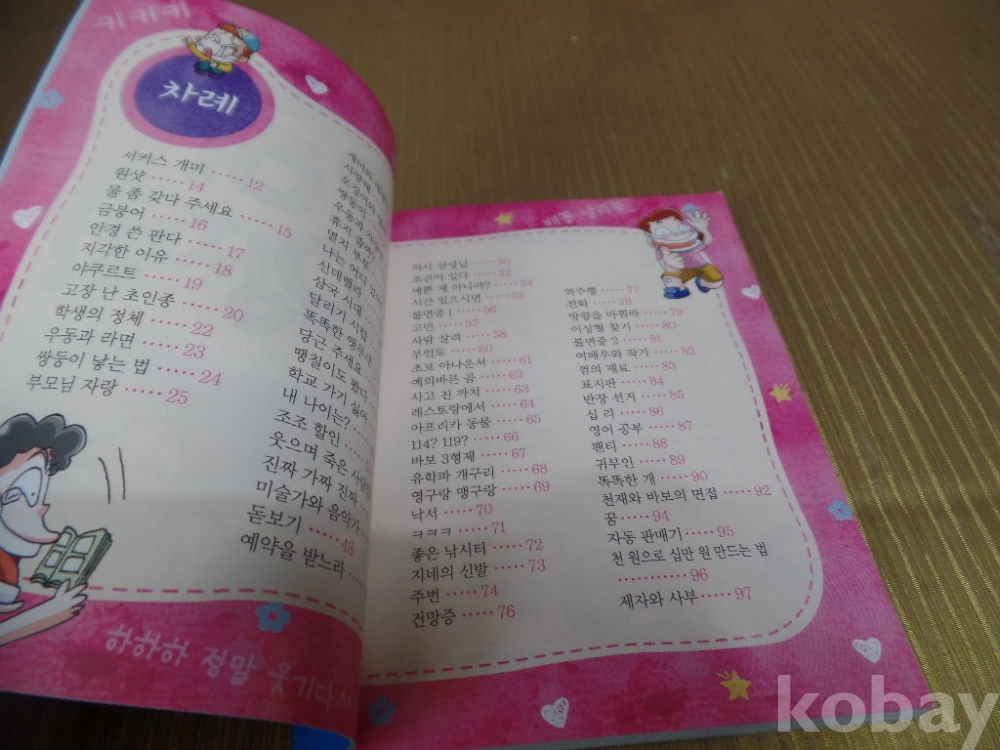 키키키
차례
서커스 개미 ····· 12
원샷 ····· 14
물 좀 갖다 주세요 ····· 15
금붕어 ····· 16
안경 쓴 판다 ····· 17
지각한 이유 ····· 18
야쿠르트 ····· 19
고장 난 초인종 ····· 20
학생의 정체 ····· 22
우동과 라면 ····· 23
쌍둥이 낳는 법 ····· 24
부모님 자랑 ····· 25
신데렐라
삼국 시대
달리기 시합
똑똑한
당근 주세요
땡칠이도 왔다
학교 가기 싫어
내 나이는?
조조 할인
웃으며 죽은
진짜 가짜 진짜
미술가와 음악가
돋보기 ····· 48
예약을 받느라
하하하 정말 웃기다
의사 선생님 ····· 50
조건이 있다 ····· 52
예쁜 게 아니야? ····· 54
시간 있으시면 ····· 55
불면증 1 ····· 56
고민 ····· 57
사람 살려 ····· 58
무인도 ····· 60
초보 아나운서 ····· 61
예의바른 곰 ····· 62
사고 친 까치 ····· 63
레스토랑에서 ····· 64
아프리카 동물 ····· 65
114? 119? ····· 66
바보 3형제 ····· 67
유학파 개구리 ····· 68
영구랑 맹구랑 ····· 69
낙서 ····· 70
ㅋㅋㅋ ····· 71
좋은 낚시터 ····· 72
지네의 신발 ····· 73
주번 ····· 74
건망증 ····· 76
역주행 ····· 77
전화 ····· 78
방향을 바꿔라 ····· 79
이상형 찾기 ····· 80
불면증 2 ····· 81
여배우와 작가 ····· 82
껌의 재료 ····· 83
표지판 ····· 84
반장 선거 ····· 85
십 리 ····· 86
영어 공부 ····· 87
팬티 ····· 88
귀부인 ····· 89
똑똑한 개 ····· 90
천재와 바보의 면접 ····· 92
꿈 ····· 94
자동 판매기 ····· 95
천 원으로 십만 원 만드는 법
··········· 96
제자와 사부 ····· 97
kobay